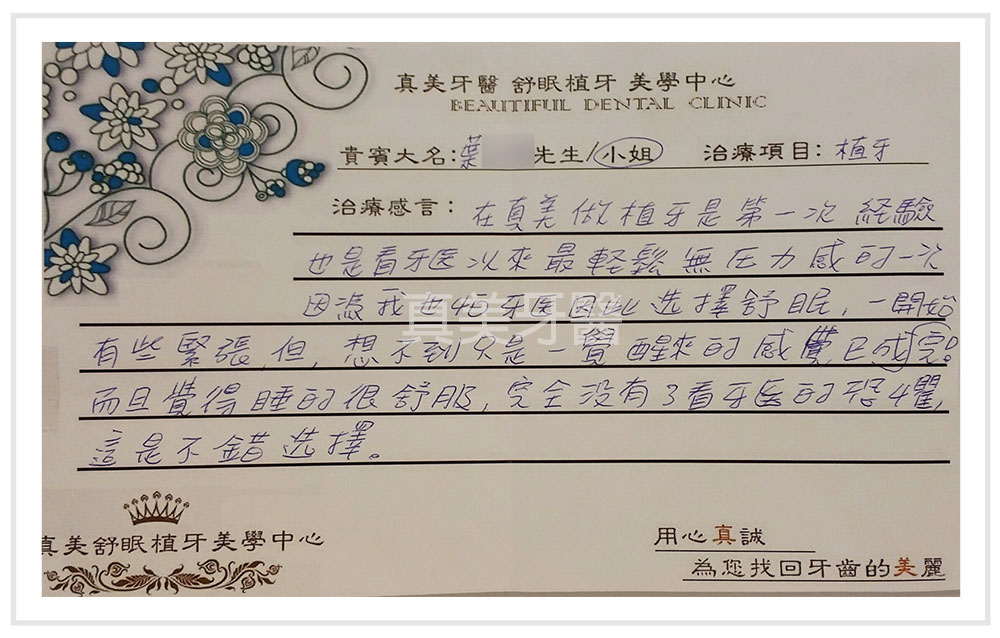 真美牙醫 舒眠植牙 美學中心
BEAUTIFUL DENTAL CLINIC
貴賓大名:葉 先生/小姐 治療項目:植牙
治療感言:在真美做植牙是第一次經驗
也是看牙医以來最輕鬆無压力感的一次
因為我也怕牙医因此选擇舒眠,一開始
有些緊張,但,想不到只是一覺醒來的感覺已成完。
而且覺得睡的很舒服,完全没有了看牙医的恐懼,
這是不錯选擇。
真美牙醫
真美舒眠植牙美學中心
用心真誠
為您找回牙齒的美麗